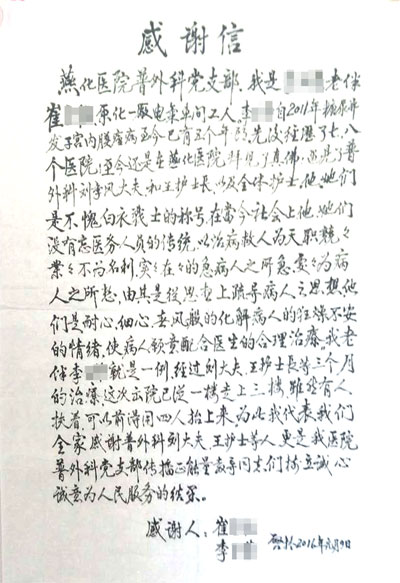 感谢信
燕化医院普外科党支部、我是 老伴
崔 原化一厂电气车间工人、李 自2011年糖尿并
发 至今已有五个年 先后经历了七、八
个医院、至今还是在燕化医院 见了真佛、 了普
外科刘季风大夫和王护士长、以及全体护士、他、她们
是不愧白衣战士的称号、在当今社会上他、她们
没有忘医务人员的传统、以治病救人为天职兢々
业々不为名利、实々在々的急病人之所急、委々为病
人之所愁、由其是从思想上疏导病人之思想、他
们是耐心、细心、春风般的化解病人的狂燥不安
的情绪、使病人欣意配合医生的合理治疗、我老
伴李 就是一例、经过刘大夫、王护士长等三个月
的治疗、这次出院已从一楼走上三楼、虽然有人
扶着、可以前得用四人抬上来、为此我代表我们
全家感谢普外科刘大夫、王护士等人、更是我医院
普外科党支部传播正能量 导同志们树立诚心
诚意为人民服务的结果。
感谢人：崔
李 2016年元月9日